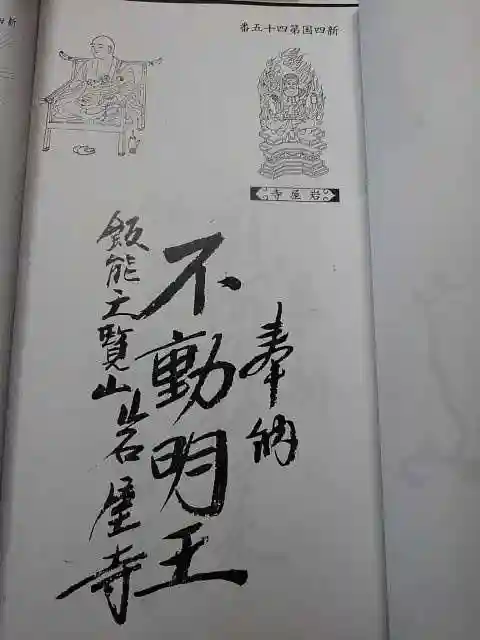 新四国第四十五番
岩屋寺
奉納
不動明王
飯能天覧山岩屋寺